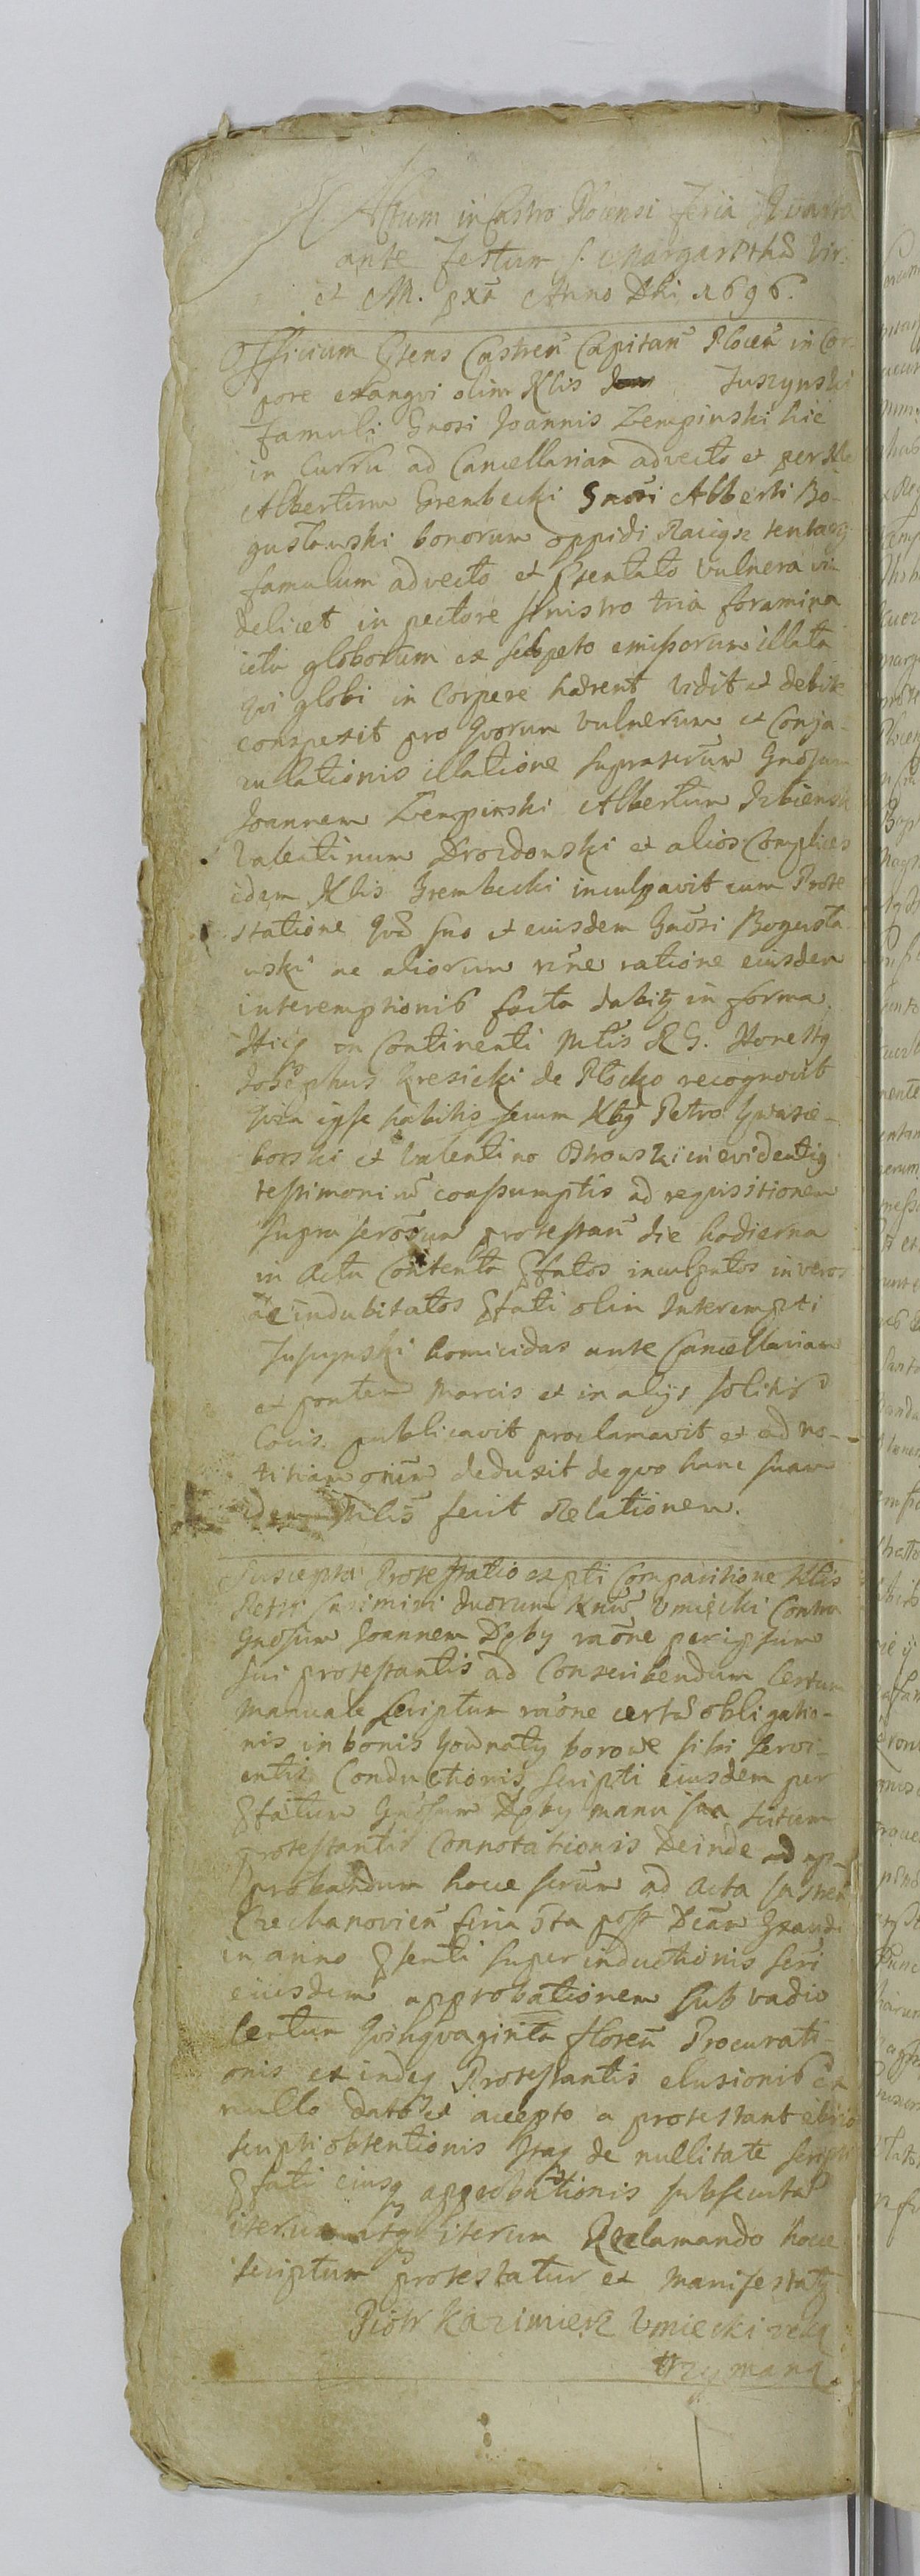 Actum in Castro Plocensi Feria Quarta
ante Festum S. Margarethæ Vir.
et M. pxa Anno Dni 1696.
Officium Gsens Castren Capitan Plocen in Cor-
pore exangvi olim Nlis Juszynski
famuli Gnosi Joannis Zempinski hic
in Curru ad Cancellariam advecto et per Nle
Albertum Grembecki Gnosi Alberti Bo-
gustawski bonorum oppidi Raciąz tentarij
famulum advecto et Psentato vulnera vi-
delicet in pectore sinistro tria foramina
ictu globorum ex selopeto emissorum illata
qvi globi in Corpore hærent vidit et debite
conspexit pro qvorum vulnerum et Conja-
culationis illatione suprascrum Gnosum
Joannem Zempinski Albertum Izbienski
Valentinum Drozdowski et alios Complices
idem Nlis Grembecki inculpavit cum Prote
statione qvd suo et eiusdem Gnosi Bogusta
wski ac aliorum nne ratione eiusdem
interemptionis facta dabitz in forma.
Hicq in Continenti Mtlis R G. Honestg
Josephus Kresicki de Plocko recognovit
Qvia ipse habitis secum Nbg Petro
borski et Valentino in evidentig
testimoniu coassumptis ad reqvisitionem
supra scrorum protestan die hodierna
in Actu Contenta Pfatos inculpatos in veros
ac indubitatos Pfati olim Interempti
Juszynski homicidas ante Cancellariam
et pontem Marcis et in alijs solitis
Locis publicavit proclamavit et ad no-
titiam oniu deduxit de qvo hanc suam
idem Mtlis fecit Relationem.
Suscepta Protestatio ex pti Comparitione Nlis
Petri Casimiri duorum Nnu Umięcki Contra
Gnosum Joannem Dęby raone per ipsum
sui protestantis ad Conscribendum Certum
Manuale Scriptum raone certæ obligatio-
nis in bonis borowe sibi servi-
entis Conductionis scripti eiusdem per
Pfatum Gnosum Dęby manu sua
protestantis Connotationis Deinde ad ap-
probandum hocce scrum ad Acta Castren
Czechanovien feria 6ta post Dcam Exaudi
in anno Psenti super inductionis scri
eiusdem approbationem sub vadio
Centum Qvinqvaginta floren Procurati-
onis et indeq Protestantis elusionis ex
nullo dato et accepto a protestante
scripti obtentionis Itaq de nullitate scripti
Pfati eiusq approbationis subsecutæ
iterum atq iterum Reclamando hocce
scriptum protestatur et Manifestatz
Piotr Kazimierz Umięcki ręką
trzymaną